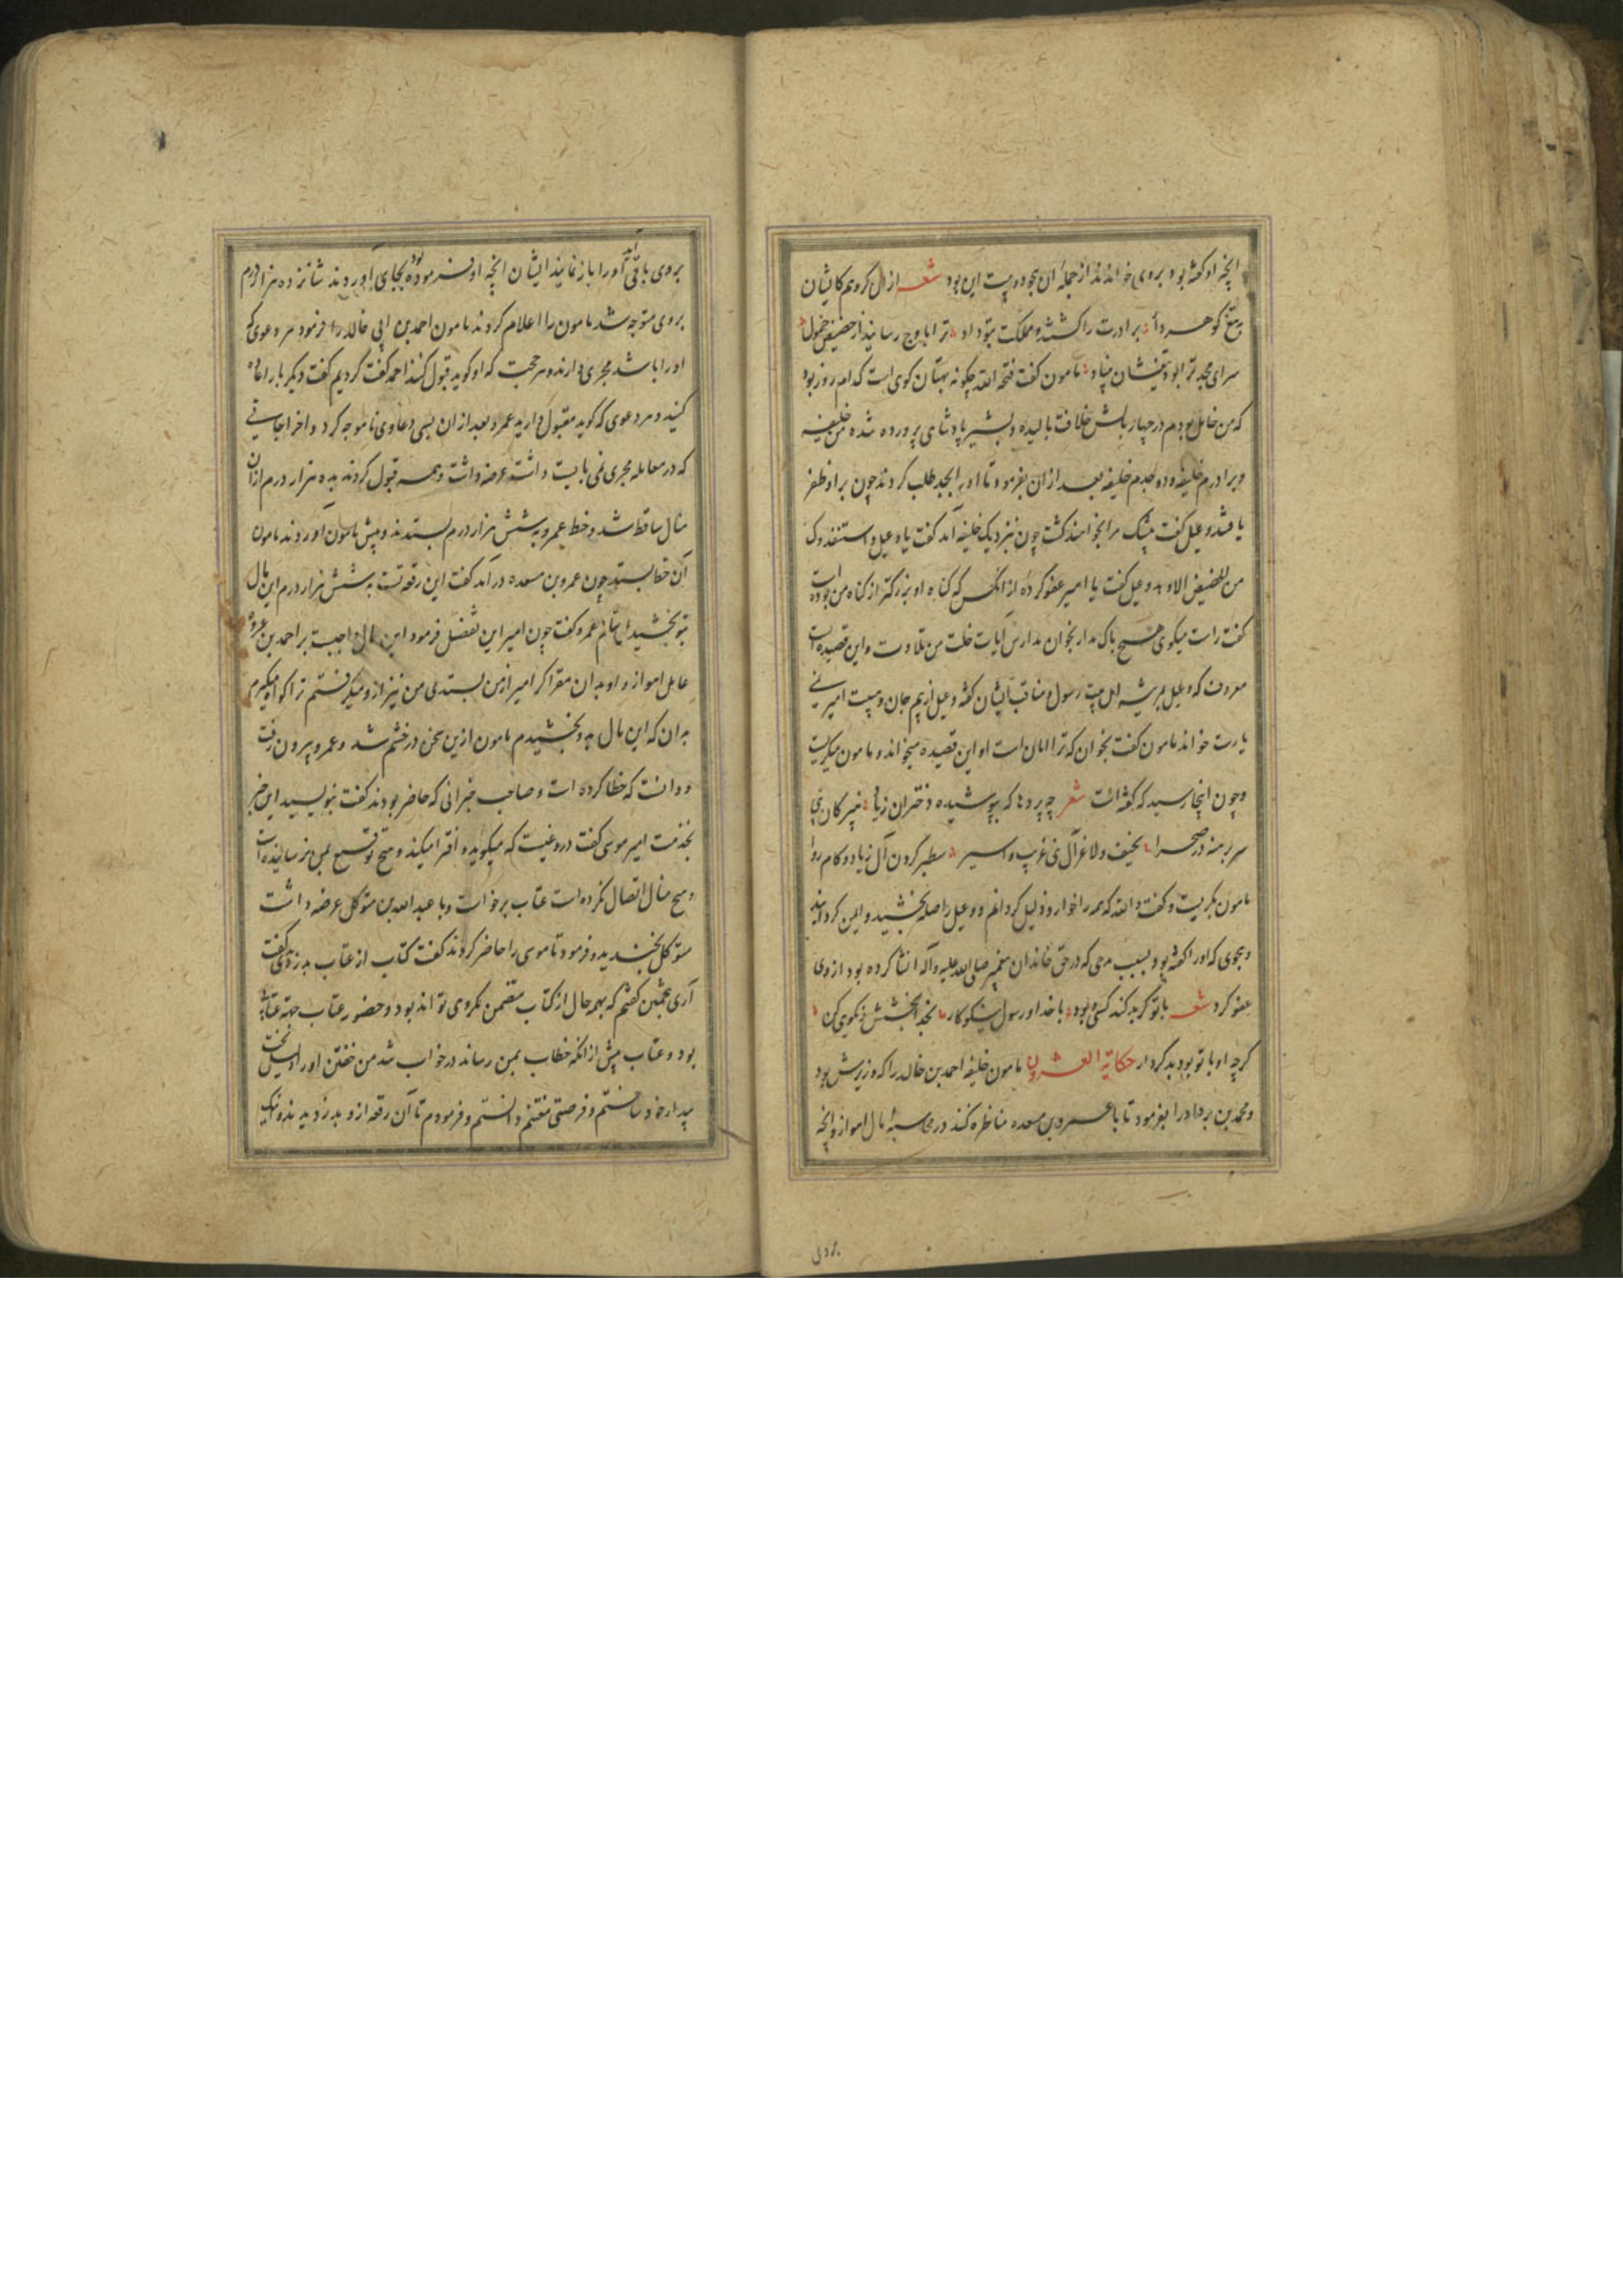 انچه او گفته بود بروی خواندند از جمله آن هجو دو بیت این بود شعر از آل کرویم کایشان
به تیغ گوهردار برادرت را کشته و مملکت بتو داد ترا باوج رسانید از حضیض خمول
سرای مجد ترا بود مامون گفت قبحه الله چگونه بهتان گوی است کدام روز بود
که من خامل بودم در چهار بالش خلافت بالیده و بشیر پادشاهی پرورده شده من خلیفه
و برادرم خلیفه و جدم خلیفه بعد از آن بفرمود تا او را بجد طلب کردند چون بر او ظفر
یافتند دعبل گفت بیشک مرا بخواهند کشت چون نزدیک خلیفه آمد گفت یا دعبل واستنقذوک
من الحضیض الاوهد دعبل گفت یا امیر عفو کرده از آنکس که گناه او بزرگتر از گناه من بوده است
گفت راست میگوی هیچ باک مدار بخوان مدارس آیات خلت من تلاوت و این قصیده است
معروف که دعبل مرثیه اهل بیت رسول و مناقب ایشان گفته دعبل از بیم جان و هیبت امیر نمی
یارست خواند مامون گفت بخوان که ترا امان است او این قصیده میخواند و مامون میگریست
و چون اینجا رسید که گفته است شعر چه پردها که بپوشیده دختران زیاد
سر برهنه در صحرا نحیف و لاغر آل نبی غریب و اسیر سطبر گردن آل زیاد و کام روا
مامون بگریست و گفت والله که همه را خوار و ذلیل گردانم و دعبل را صله بخشید و ایمن گردانید
و هجوی که او را گفته بود بسبب مدحی که در حق خاندان پیغمبر صلی الله علیه وآله انشا کرده بود از وی
عفو کرد شعر با تو گر بد کند کسی بود با خدا و رسول نیکوکار بخدا بخشش و نکوی کن
گرچه او با تو بود بدکردار حکایة العشرون مامون خلیفه احمد بن خالد را که وزیرش بود
و محمد بن یزداد را بفرمود تا با عمرو بن مسعده مناظره کنند در محاسبه مال اهواز و انچه
بروی باقی آید او را باز نمایند ایشان انچه او فرموده بود بجای آوردند شانزده هزار درم
بروی متوجه شد مامون را اعلام کردند مامون احمد بن ابی خالد را فرمود هر دعوی که
او را باشد مجری دارند و هر حجت که او گوید قبول کنند احمد گفت کردیم گفت دیگر بار اعاده
کنید و هر دعوی که گوید مقبول دارید عمرو بعد از آن بسی دعاوی ناموجه کرد و اخراجاتی
که در معامله مجری نمی بایست داشت عرضه داشت و همه قبول کردند ده هزار درم از آن
مال ساقط شد و خط عمرو به شش هزار درم بستدند و پیش مامون آوردند مامون
آن خط بستد چون عمرو بن مسعده در آمد گفت این رقعه تست به شش هزار درم این مال
بتو بخشیدم بستان عمرو گفت چون امیر این تفضل فرمود این مال واجبست بر احمد بن عروه
عامل اهواز و او بدان مقر اگر امیر از من بستدی من نیز ازو میگرفتم ترا گواه میگیرم
بدان که این مال بدو بخشیدم مامون ازین سخن در خشم شد و عمرو بیرون رفت
و دانست که خطا کرده است و صاحب خبرانی که حاضر بودند گفت بنویسید این خبر
بخدمت امیر موسی گفت دروغیست که میگوید و افترا میکند و هیچ توقیع بمن نرسانیده است
و هیچ مثال اتصال نکرده است عتاب برخواست و با عبدالله بن متوکل عرضه داشت
متوکل بخندید و فرمود تا موسی را حاضر کردند گفت کتاب از عتاب بدزدی گفت
آری بجهت آن گفتم که بهر حال از کتاب متضمن مکروهی تواند بود و حضور عتاب جهة عتاب
بود و عتاب پیش از آنکه خطاب بمن رساند در خواب شد من خفتن او را دلیل بخت
بیدار خود ساختم و فرصتی مغتنم دانستم و فرمودم تا آن رقعه ازو بدزدیدند و اینک